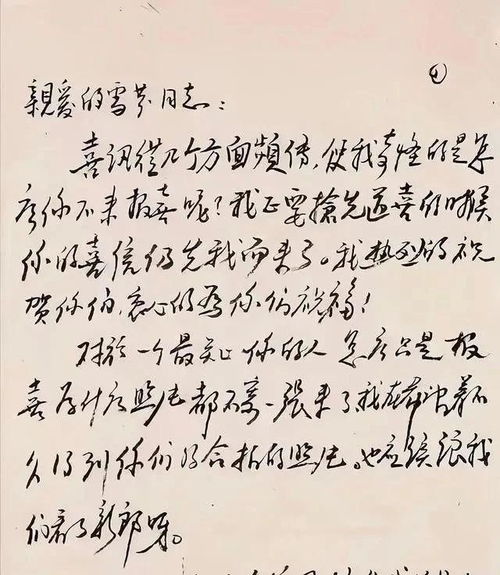 ①
親愛的雪芬同志：
喜訊從几个方面頻傳，使我奇怪的是怎
么你不来报喜呢？我正要搶先道喜的时候
你的喜信仍先我而来了。我热烈的祝
贺你们，衷心的為你们祝福！
对於一个最关心你的人怎么只是报
喜为什么照片都不寄一張来了我在希望着不
久得到你们的合拍的照片。也应該讓我
们看了新郎呀。